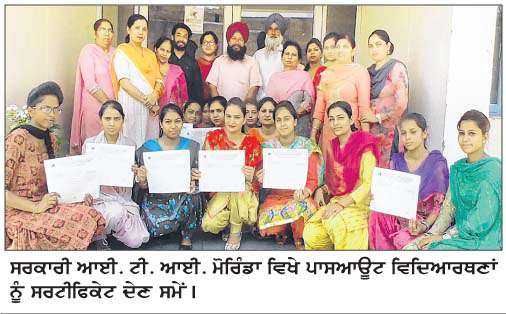 ਸਰਕਾਰੀ ਆਈ. ਟੀ. ਆਈ. ਮੋਰਿੰਡਾ ਵਿਖੇ ਪਾਸਆਊਟ ਵਿਦਿਆਰਥਣਾਂ
ਨੂੰ ਸਰਟੀਫਿਕੇਟ ਦੇਣ ਸਮੇਂ।